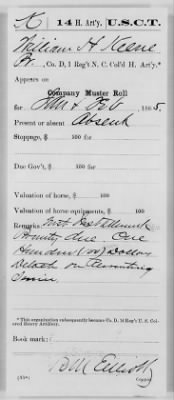 K | 14 H. Art'y. | U.S.C.T.
William H Keene
Pt., Co. D, 1 Reg't N. C. Col'd H. Art'y.*
Appears on
Company Muster Roll
for Jan & Feb, 1865.
Present or absent Absent
Stoppage, $ 100 for
Due Gov't, $ 100 for
Valuation of horse, $ 100
Valuation of horse equipments, $ 100
Remarks:
Bounty due One
Hundred (100) Dollars
on Recruiting
Service
* This organization subsequently became Co. D, 14 Reg't U. S. Colored Heavy Artillery.
Book mark:
Elliott
Copyist.